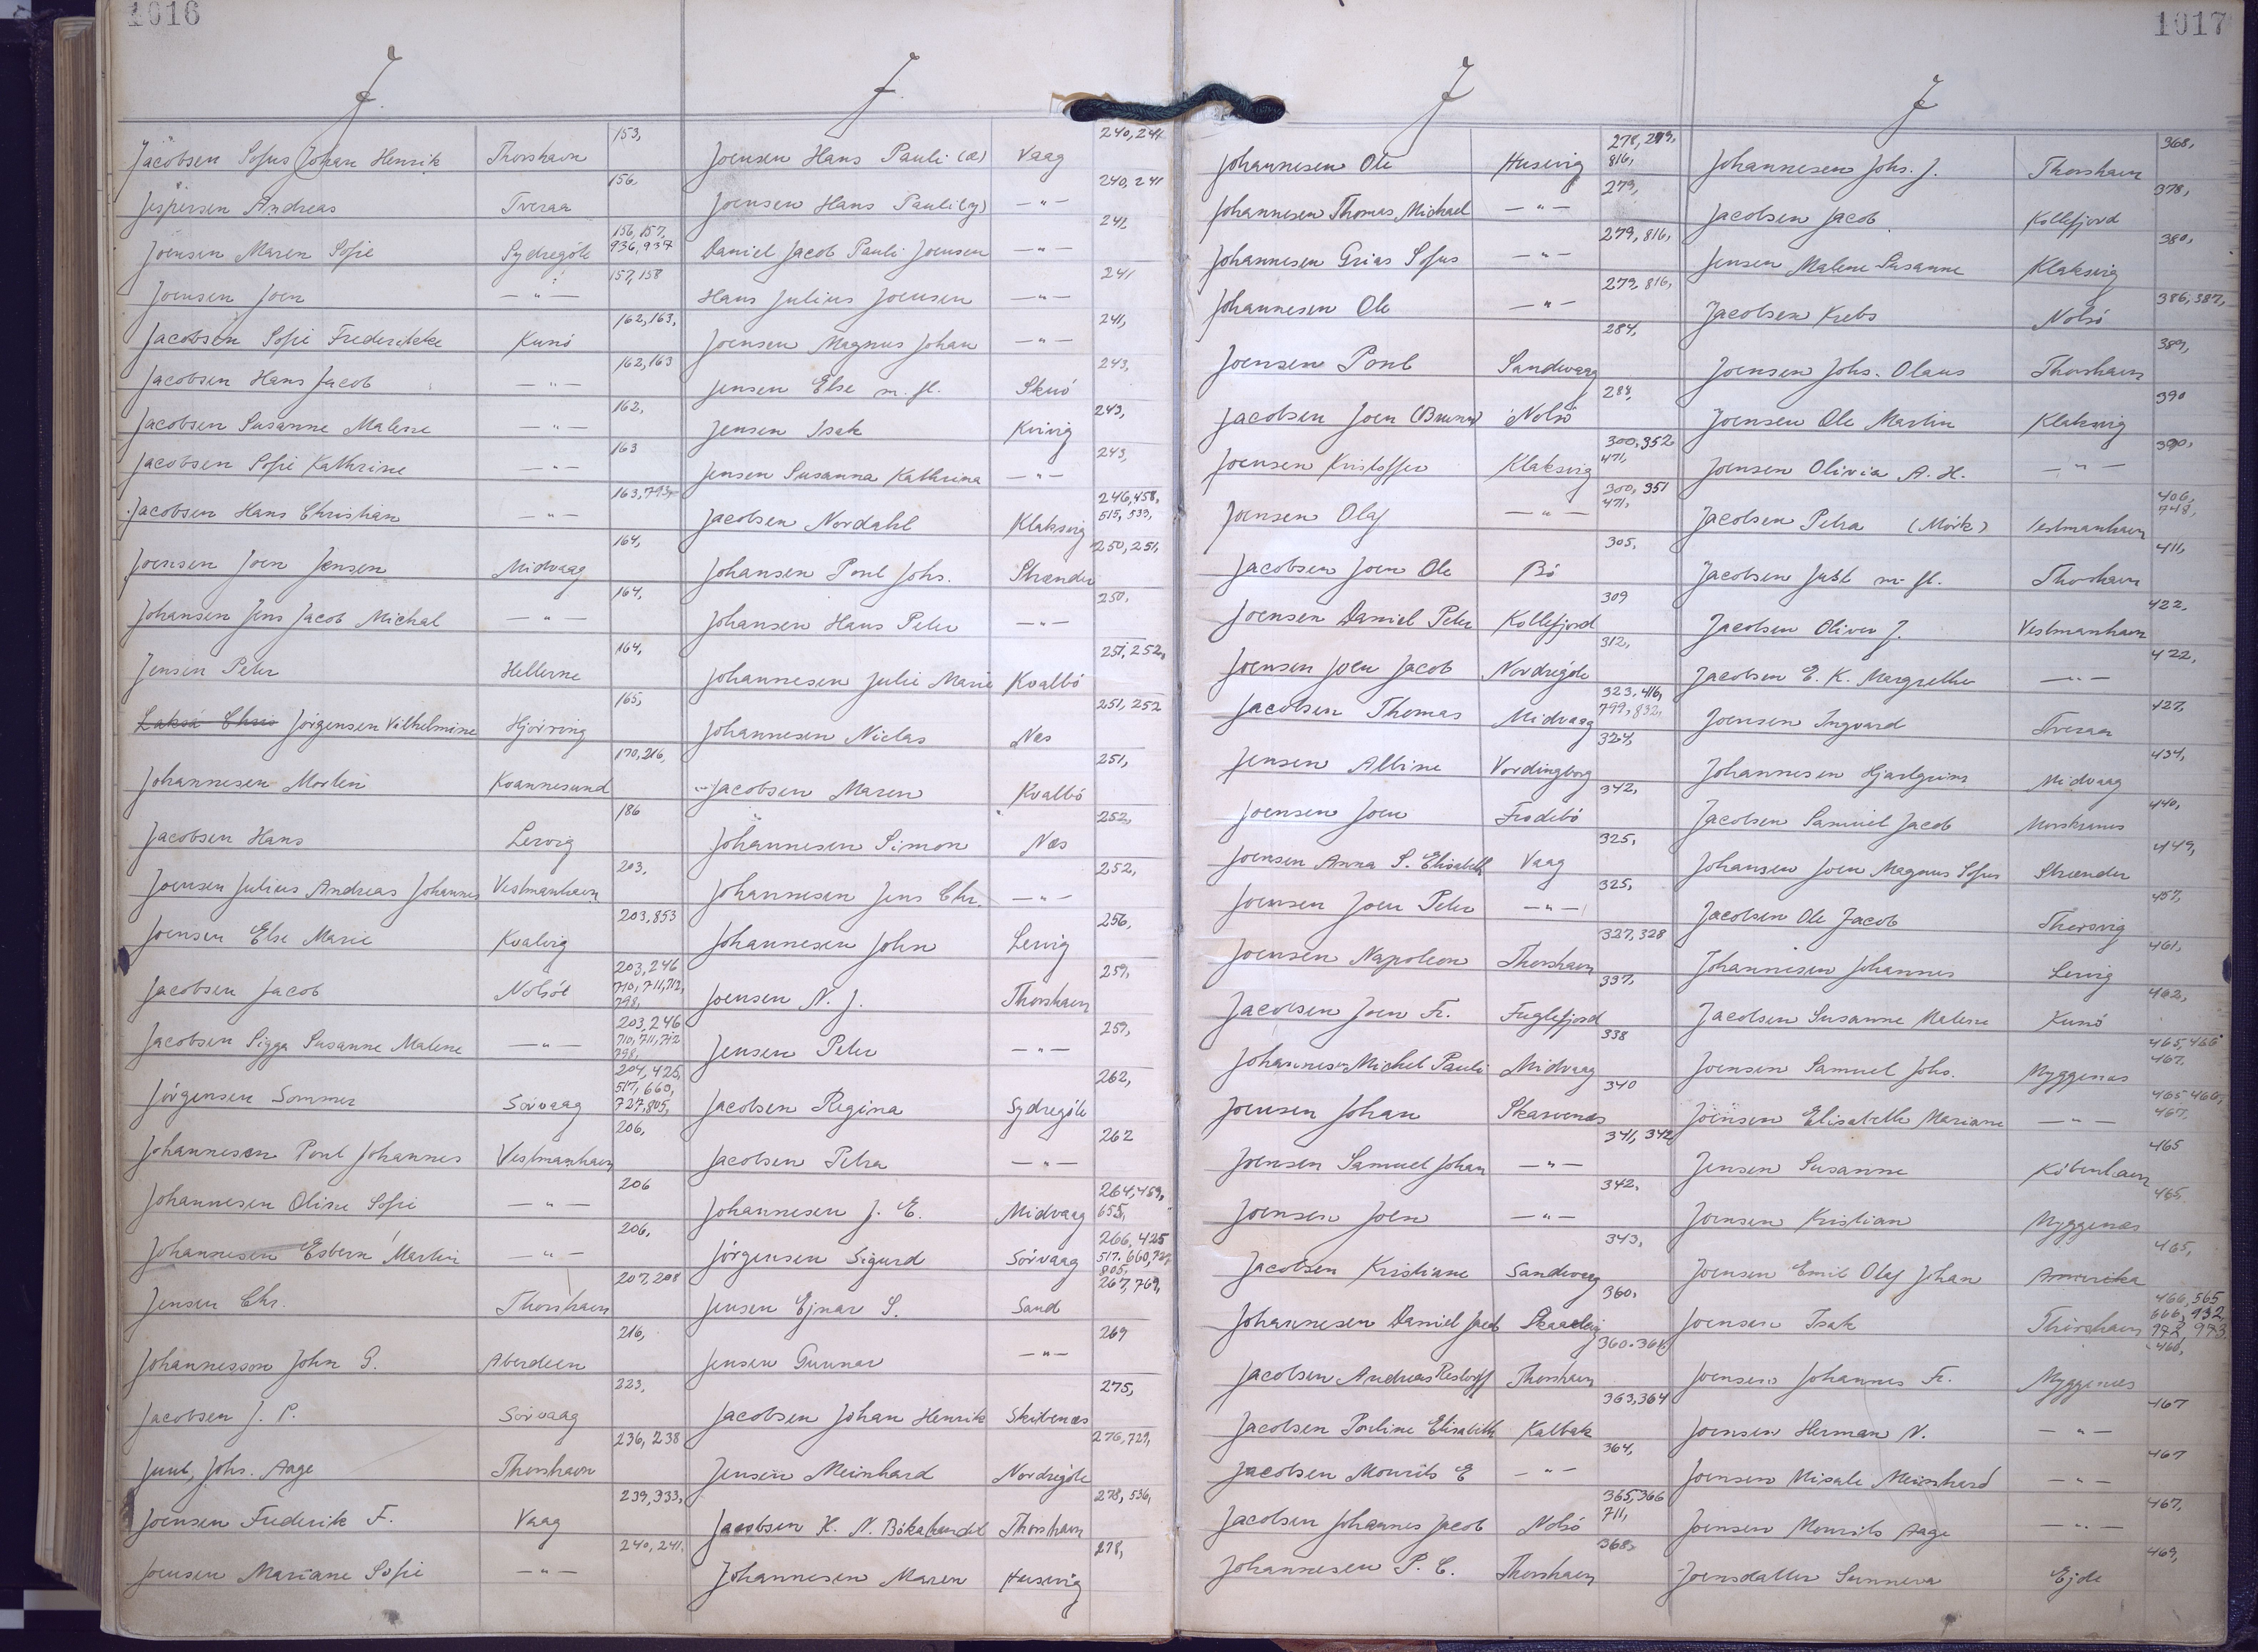 1016
J.
Jacobsen Sofus Johan Henrik Thorshavn 153,
Jespersen Andreas Tveraa 156.
Joensen Maren Sofie Sydregöte 156, 157, 936, 937
Joensen Joen —"— 157, 158
Jacobsen Sofie Frederikke Kunö 162, 163,
Jacobsen Hans Jacob —"— 162, 163
Jacobsen Susanne Malene —"— 162,
Jacobsen Sofie Kathrine —"— 163
Jacobsen Hans Christian —"— 163, 793,
Joensen Joen Jensen Midvaag 164,
Johansen Jens Jacob Michal —"— 164,
Jensen Peter Hellerne 164,
Jörgensen Vilhelmine Hjörring 165,
Johannesen Morten Kvannesund 170, 216,
Jacobsen Hans Lervig 186
Joensen Julius Andreas Johannes Vestmanhavn 203,
Joensen Else Marie Kvalvig 203, 853
Jacobsen Jacob Nolsöe 203, 246 710, 711, 712, 798,
Jacobsen Sigga Susanne Malene —"— 203, 246 710, 711, 712 798,
Jörgensen Sommer Sörvaag 204, 425, 517, 660, 727, 805,
Johannesen Poul Johannes Vestmanhavn 206,
Johannesen Oline Sofie —"— 206
Johannesen Esbern Martin —"— 206,
Jensen Chr. Thorshavn 207, 208
Johannesson John G. Aberdeen 216,
Jacobsen J. P. Sörvaag 223,
Juul, Johs. Aage Thorshavn 236, 238
Joensen Frederik F. Vaag 239, 333,
Joensen Mariane Sofie —"— 240, 241,
J.
Joensen Hans Pauli (æ) Vaag 240, 241
Joensen Hans Pauli (y) —"— 240, 241
Daniel Jacob Pauli Joensen —"— 241,
Hans Julius Joensen —"— 241
Joensen Magnus Johan —"— 241,
Jensen Else m. fl. Skuö 243,
Jensen Isak Kvivig 243,
Jensen Susanna Kathrina —"— 243,
Jacobsen Nordahl Klaksvig 246, 458, 515, 533,
Johansen Poul Johs. Strænder 250, 251,
Johansen Hans Peter —"— 250,
Johannesen Julie Marie Kvalbö 251, 252,
Johannesen Niclas Næs 251, 252
Jacobsen Maren Kvalbö 251,
Johannesen Simon Næs 252,
Johannesen Jens Chr. —"— 252,
Johannesen John Lervig 256,
Joensen N. J. Thorshavn 259,
Jensen Peter —"— 259,
Jacobsen Regina Sydregöte 262,
Jacobsen Petra —"— 262
Johannesen J. E. Midvaag 264, 459, 655,
Jörgensen Sigurd Sörvaag 266, 425 517, 660, 727, 805,
Jensen Ejnar S. Sand 267, 769,
Jensen Gunnar —"— 269
Jacobsen Johan Henrik Skibenæs 275,
Jensen Meinhard Nordregöte 276, 729,
Jacobsen H. N. Bókahandil Thorshavn 278, 536,
Johannesen Maren Husevig 278,
1017
J
Johannesen Ole Husevig 278, 279, 816,
Johannesen Thomas Michael —"— 279,
Johannesen Grias Sofus —"— 279, 816,
Johannesen Ole —"— 279, 816,
Joensen Poul Sandevaag 284,
Jacobsen Joen Nolsö 284,
Joensen Kristoffer Klaksvig 300, 352 471,
Joensen Olaf —"— 300, 351 471,
Jacobsen Joen Ole Bö 305,
Joensen Daniel Peter Kollefjord 309
Joensen Joen Jacob Nordregöte 312,
Jacobsen Thomas Midvaag 323, 416, 799, 832,
Jensen Albine Vordingborg 324,
Joensen Joen Frodebö 342,
Joensen Anna S. Elisabeth Vaag 325,
Joensen Joen Peter —"— 325,
Joensen Napoleon Thorshavn 327, 328
Jacobsen Joen Fr. Fuglefjord 337,
Johannesen Michel Pauli Midvaag 338
Joensen Johan Skarvenæs 340
Joensen Samuel Johan —"— 341, 342
Joensen Joen —"— 342,
Jacobsen Kristiane Sandevaag 343,
Johannesen Daniel Jacob Skaalevig 360,
Jacobsen Andreas Restorff Thorshavn 360, 361,
Jacobsen Pouline Elisabeth Kalbak 363, 364
Jacobsen Mourits E —"— 364,
Jacobsen Johannes Jacob Nolsö 365, 366 711,
Johannesen P. C. Thorshavn 368,
J
Johannesen Johs. J. Thorshavn 368,
Jacobsen Jacob Kollefjord 378,
Jensen Malene Susanne Klaksvig 380,
Jacobsen Krebs Nolsö 386, 387,
Joensen Johs. Olaus Thorshavn 389,
Joensen Ole Martin Klaksvig 390
Joensen Olivia A. H. —"— 390,
Jacobsen Petra (Mörk) Vestmanhavn 406, 748,
Jacobsen Just m. fl. Thorhavn 411,
Jacobsen Oliver J. Vestmanhavn 422,
Jacobsen E. K. Margrethe —"— 422,
Joensen Ingvard Tveraa 427,
Johannesen Hjarlgrim Midvaag 434,
Jacobsen Samuel Jacob Morskranes 440,
Johansen Joen Magnus Sofus Strænder 449,
Jacobsen Ole Jacob Thorsvig 457,
Johannesen Johannes Lervig 461,
Jacobsen Susanne Malene Kunö 462,
Joensen Samuel Johs. Myggenæs 465, 466 467,
Joensen Elisabeth Mariane —"— 465, 466, 467,
Jensen Susanne Köbenhavn 465
Joensen Kristian Myggenæs 465,
Joensen Emil Olaf Johan Amerika 465,
Joensen Isak Thorshavn 466, 565 666, 932, 972, 973
Joensen Johannes Fr. Myggenæs 466,
Joensen Herman N. —"— 467
Joensen Misale Meinhard —"— 467
Joensen Mourits Aage —"— 467,
Joensdatter Sunneva Ejde 469,